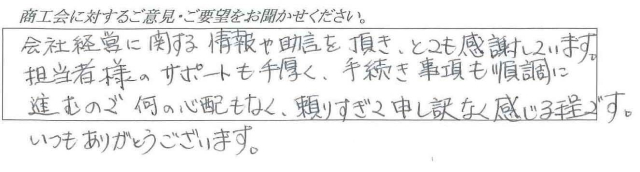 商工会に対するご意見・ご要望をお聞かせください。
会社経営に関する情報や助言を頂き、とても感謝しています。
担当者様のサポートも手厚く、手続き事項も順調に
進むので何の心配もなく、頼りすぎて申し訳なく感じる程です。
いつもありがとうございます。